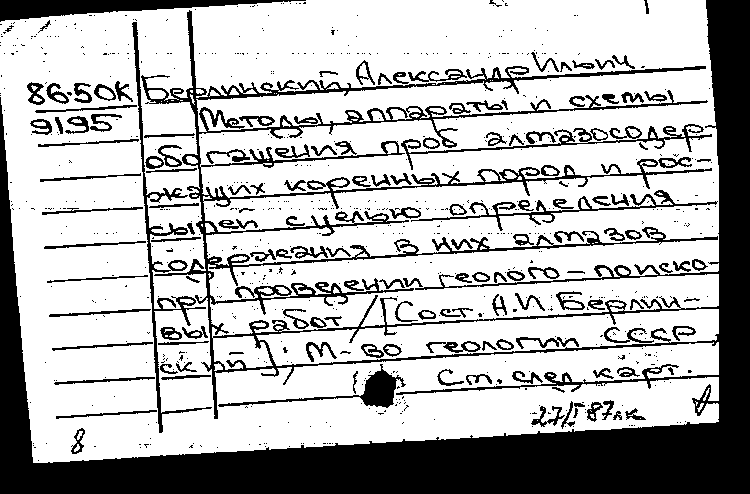 86.50К Берлинский, Александр Ильич.
9195 Методы, аппараты и схемы
обогащения проб алмазосодер-
жащих коренных пород и рос-
сыпей с целью определения
содержания в них алмазов
при проведении геолого-поиско-
вых работ / [Сост. А.И. Берлин-
ский]; М-во геологии СССР,
См. след. карт.
27/I 87
8